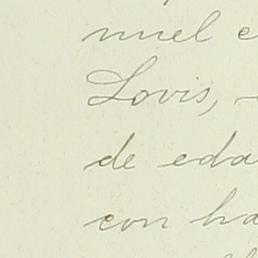 nuel
Lovis,
de eda
con ha